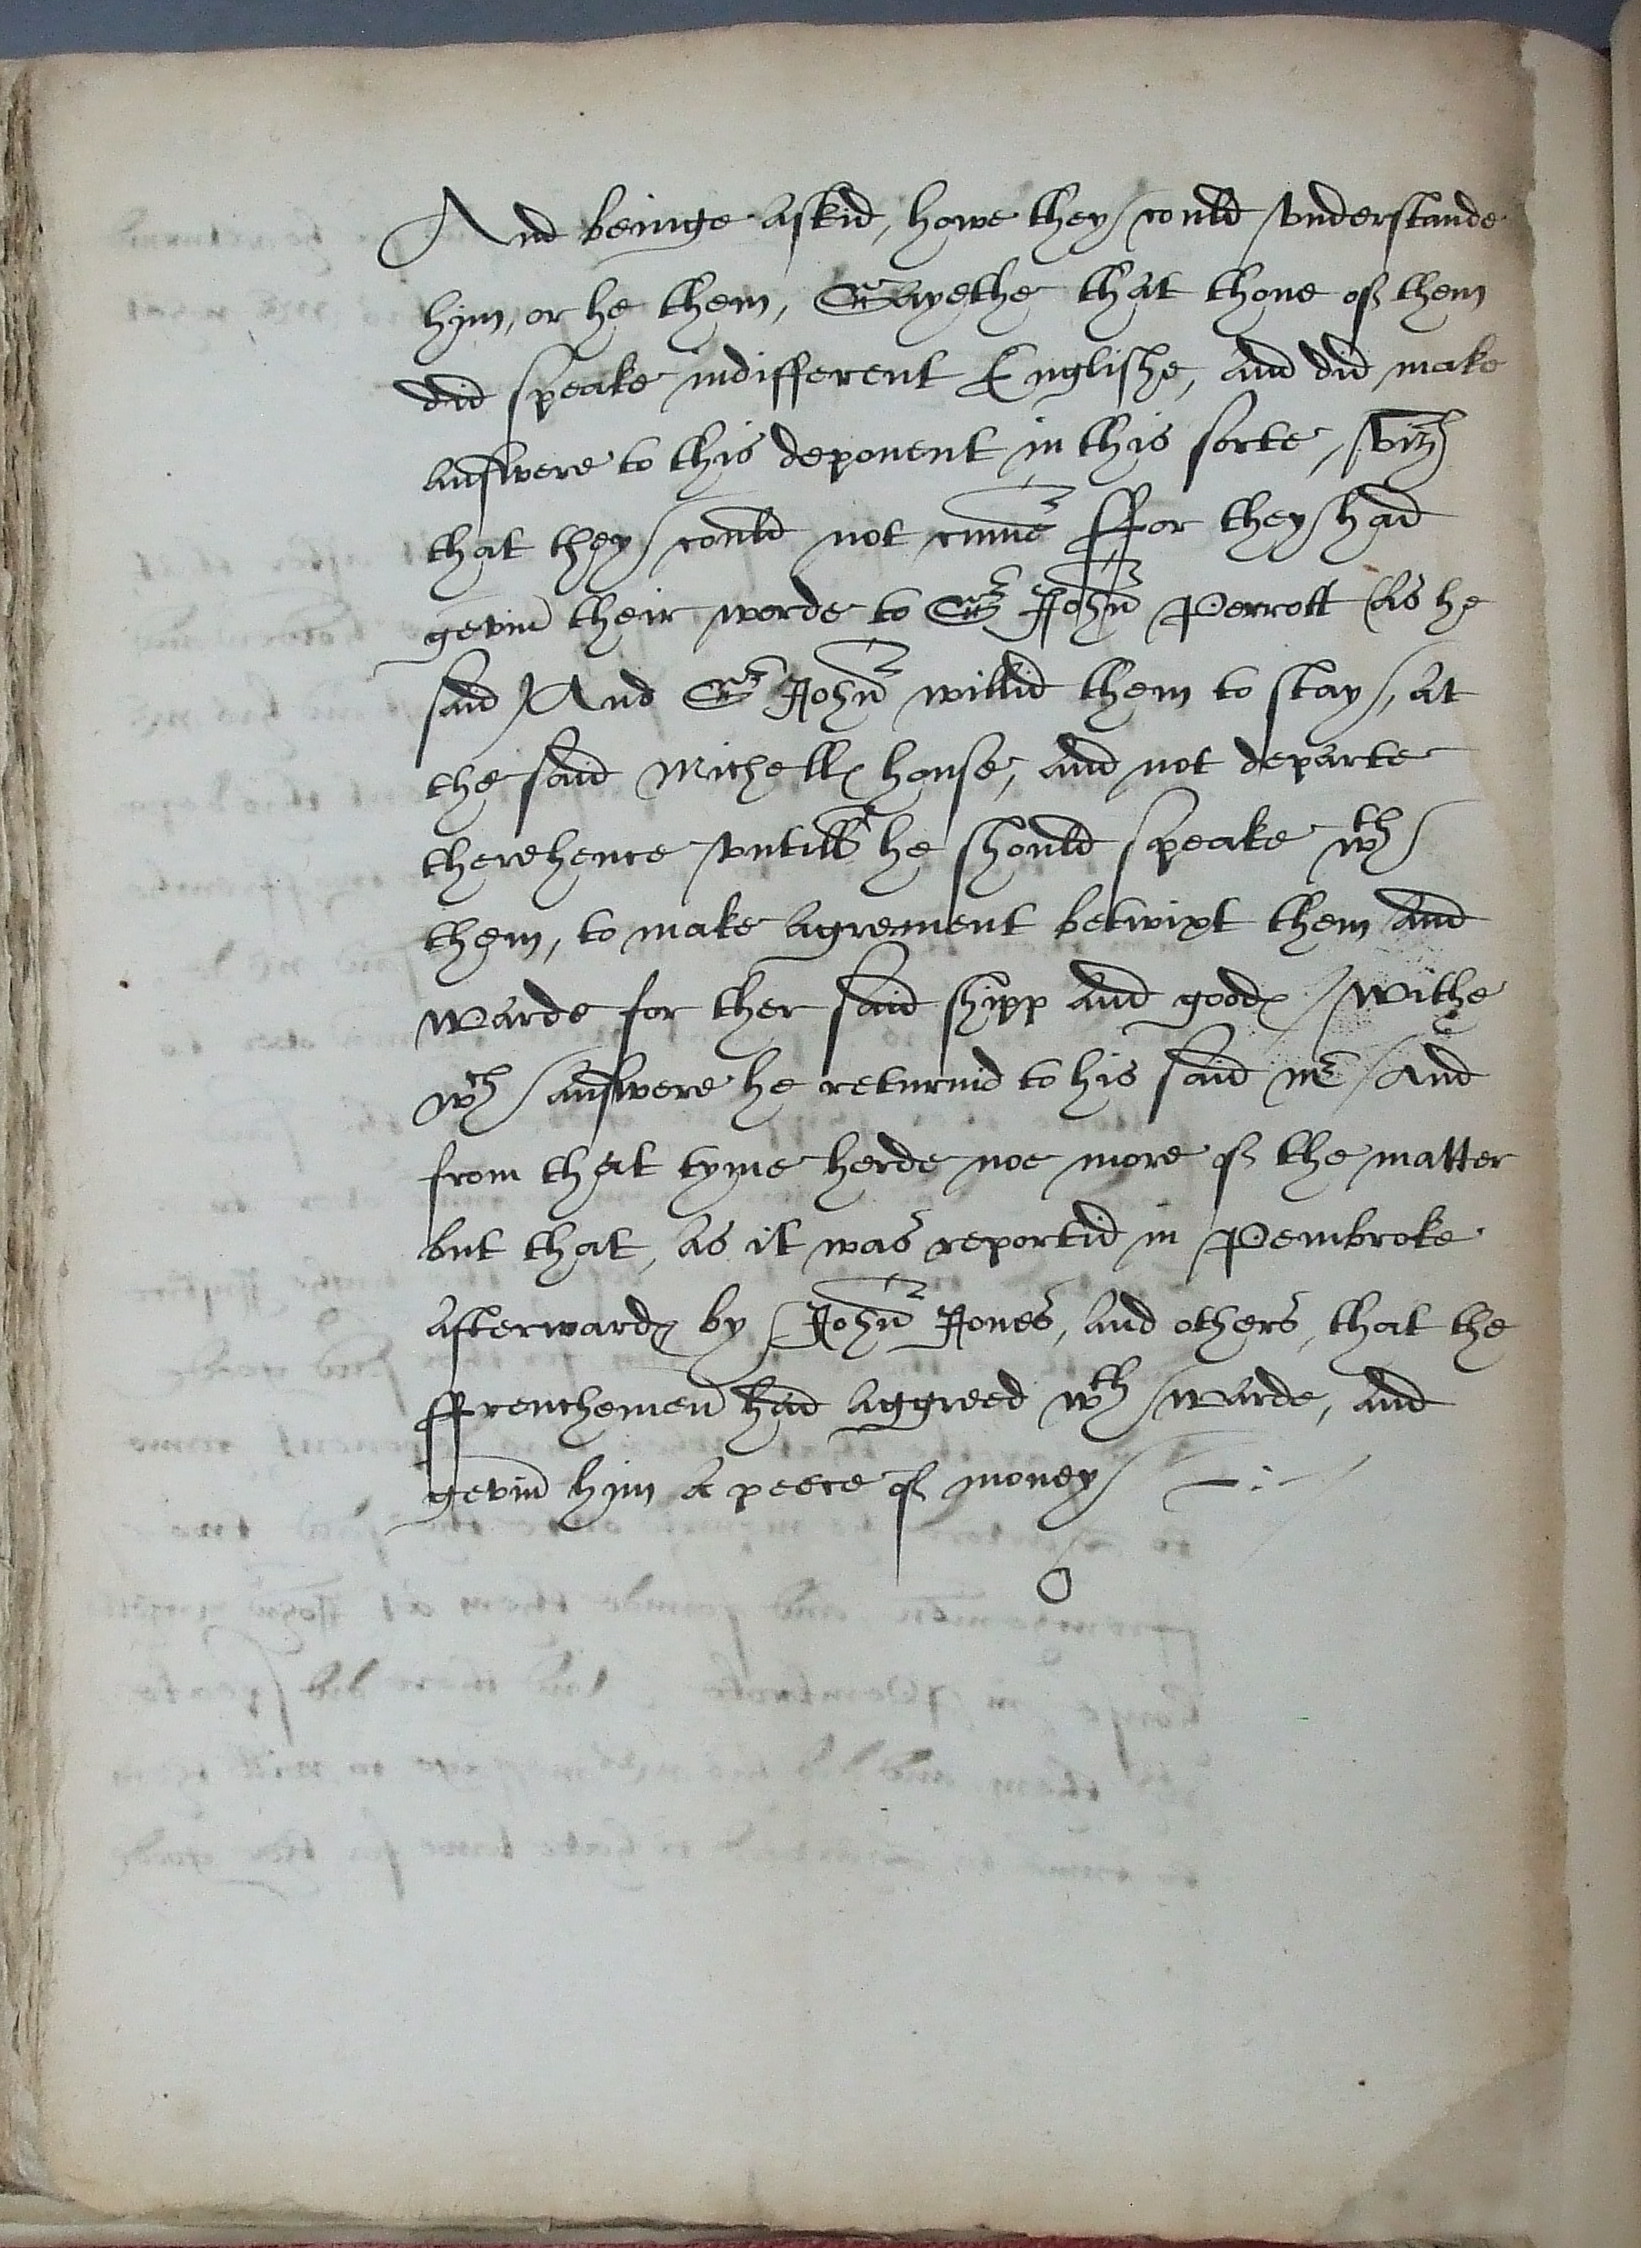 And beinge askid, howe they could vnderstande
hym, or he them, Sayethe that thone of them
did speake indifferent Englishe, and did make
answere to this deponent in this sorte, vizt
that they could not cume ffor they had
gevin their worde to Sr John Perrott (as he
said) And Sr John willid them to stay, at
the said Michells house, and not departe
therehence vntill he should speake wth
them, to make agrement betwixt them and
Warde for ther said shipp and goodes / Withe
wch answere he returnid to his said mr / And
from that tyme herde noe more of the matter
but that, as it was reportid in Pembroke
afterwardes by John Jones, and others, that the
ffrenchemen had aggreed wth Warde, and
gevin hym a peece of money